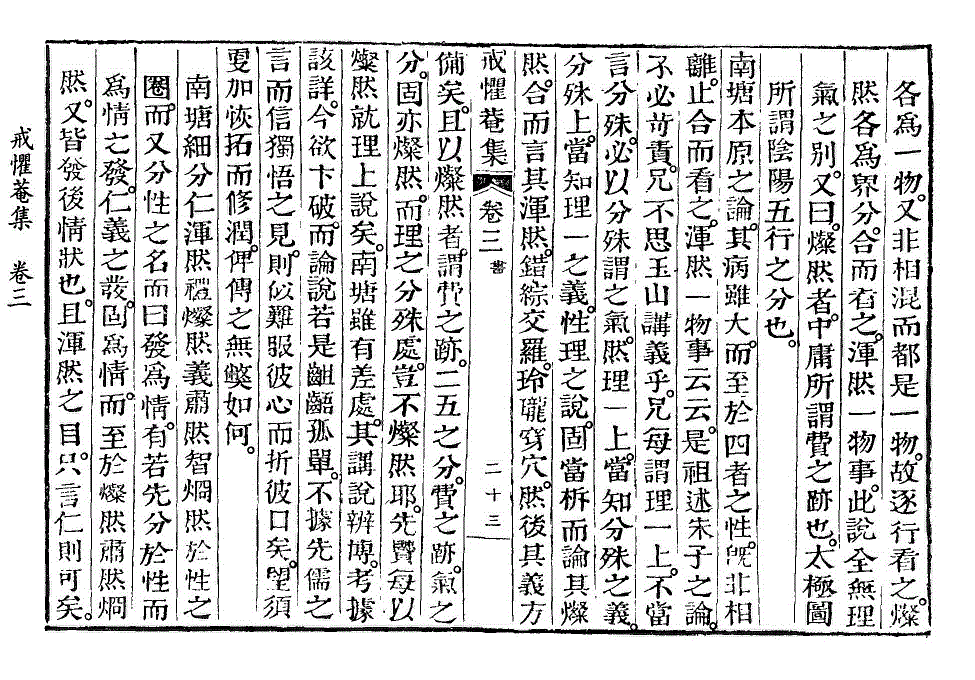 各爲一物。又非相混而都是一物。故逐行看之。燦
然各爲界分。合而看之。渾然一物事。此說全無理
氣之別。又曰。燦然者。中庸所謂費之跡也。太極圖
所謂陰陽五行之分也。
南塘本原之論。其病雖大。而至於四者之性。旣非相
離。止合而看之。渾然一物事云云。是祖述朱子之論。
不必苛責。兄不思玉山講義乎。兄每謂理一上。不當
言分殊。必以分殊謂之氣。然理一上。當知分殊之義。
分殊上。當知理一之義。性理之說。固當析而論其燦
然。合而言其渾然。錯綜交羅。玲瓏穿穴。然後其義方
戒懼菴集 卷三 書 二十三
備矣。且以燦然者。謂費之跡。二五之分。費之跡。氣之
分。固亦燦然。而理之分殊處。豈不燦然耶。先賢每以
燦然就理上說矣。南塘雖有差處。其講說辨博。考據
該詳。今欲卞破。而論說若是齟齬孤單。不據先儒之
言而信獨悟之見。則似難服彼心而折彼口矣。望須
更加恢拓而修潤。俾傳之無弊如何。
南塘細分仁渾然禮燦然義肅然智烱然於性之
圈。而又分性之名而曰發爲情。有若先分於性而
爲情之發。仁義之發。固爲情。而至於燦然肅然烱
然。又皆發後情狀也。且渾然之目。只言仁則可矣。
戒懼菴集 卷三